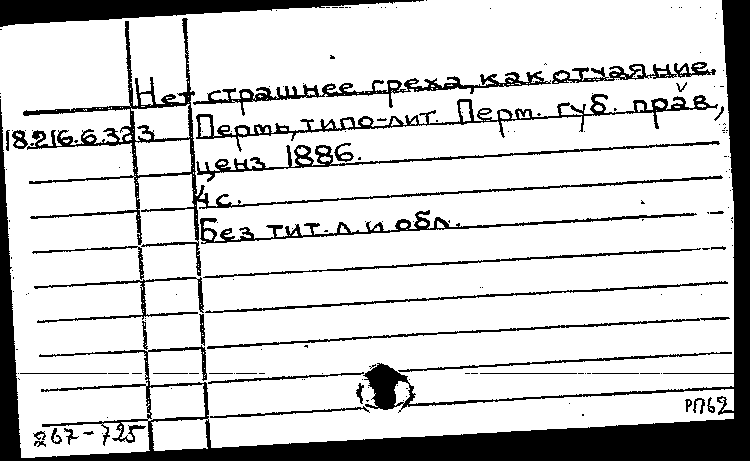 Нет страшнее греха, как отчаяние.
18.216.6.323 Пермь, типо-лит. Перм. губ. прав,
ценз 1886.
4 с.
Без тит. л. и обл.
267-725
РП62